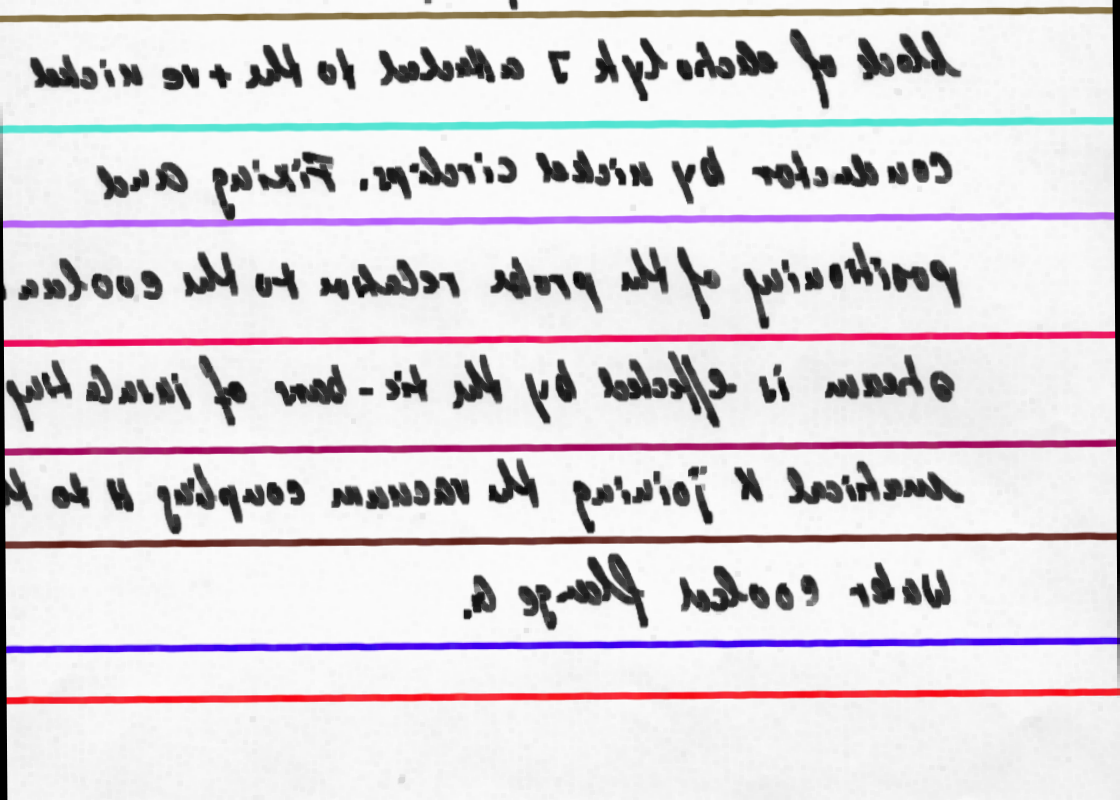 block of electrolyte J attached to the +ve nickel
conductor by nickel circlips. Fixing and
positioning of the probe relation to the coolan
stream is effected by the tie-bars of insulating
material K joining the vacuum coupling H to
water cooled flange G.